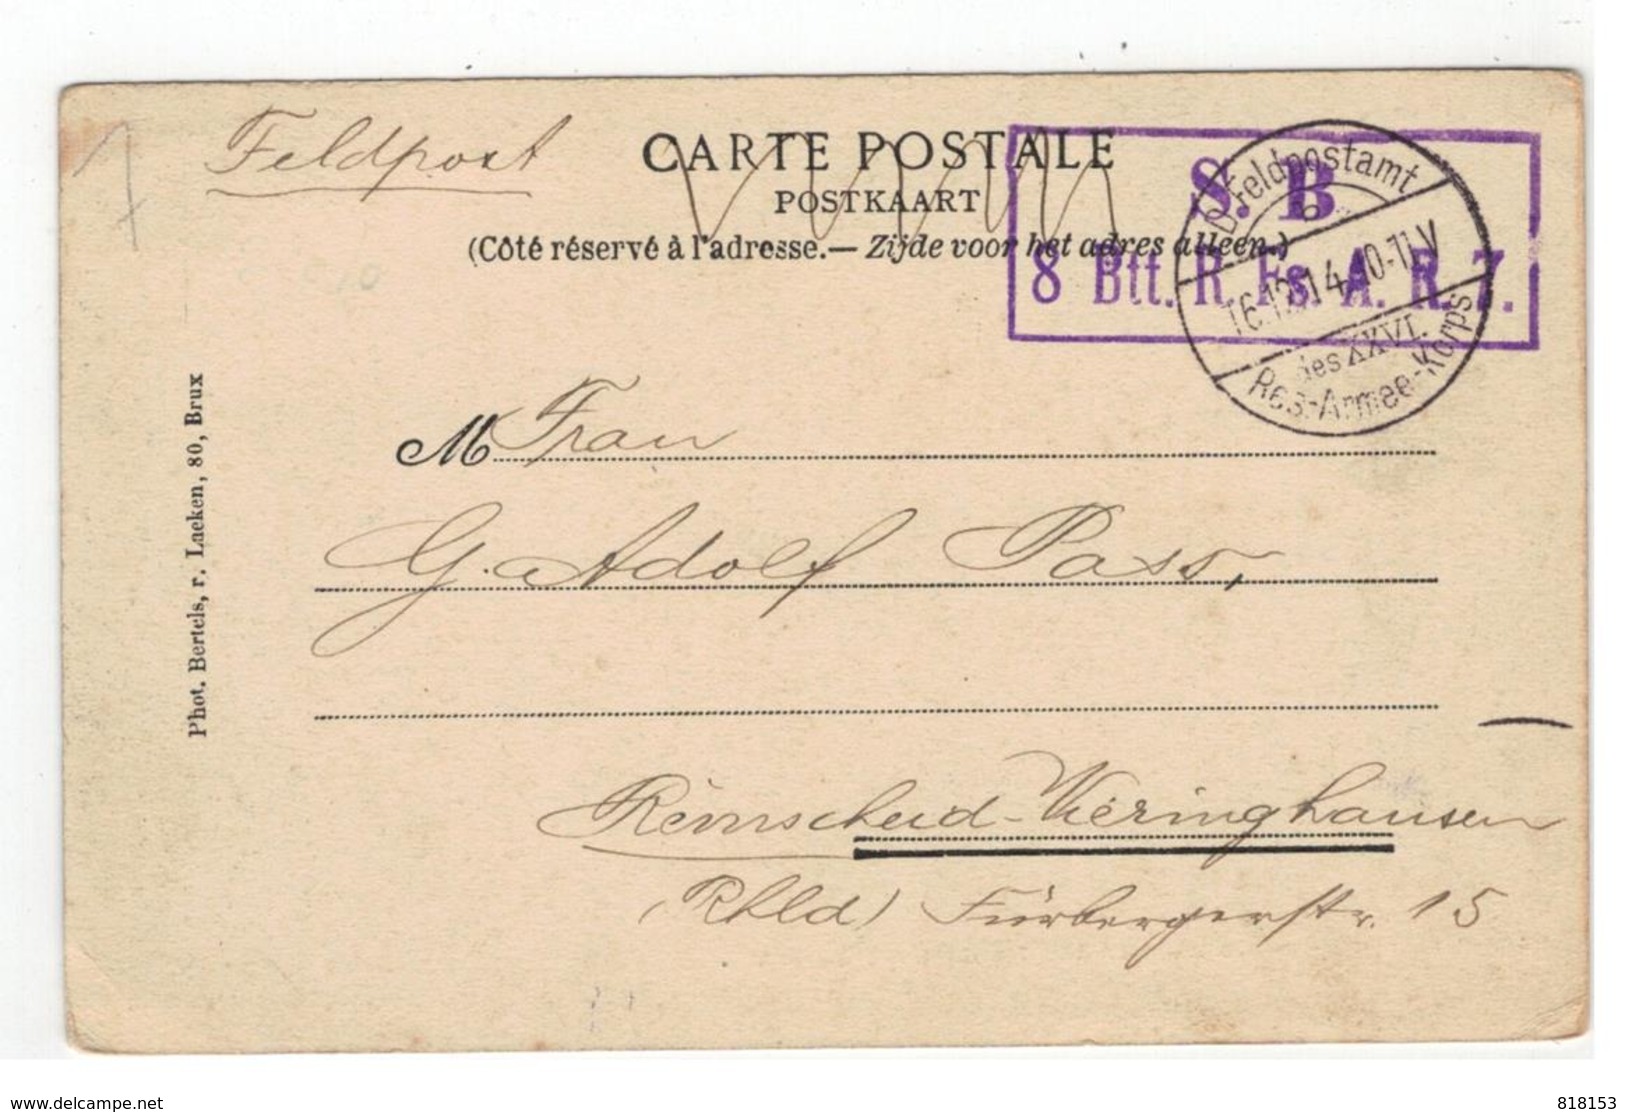 7
Feldpost
CARTE POSTALE
POSTKAART
(Côté réservé à l'adresse.— Zijde voor het adres alleen.)
S. B
8 Btt. R. Fs. A. R. 7.
Feldpostamt
16.12.14.10-11V
des XXVI.
Res.-Armee-Korps
Phot. Bertels, r. Laeken, 80, Brux
M Frau
G. Adolf Pass,
Remscheid-Vieringhausen
(Rhld) Fürbergerstr. 15
www.delcampe.net
818153